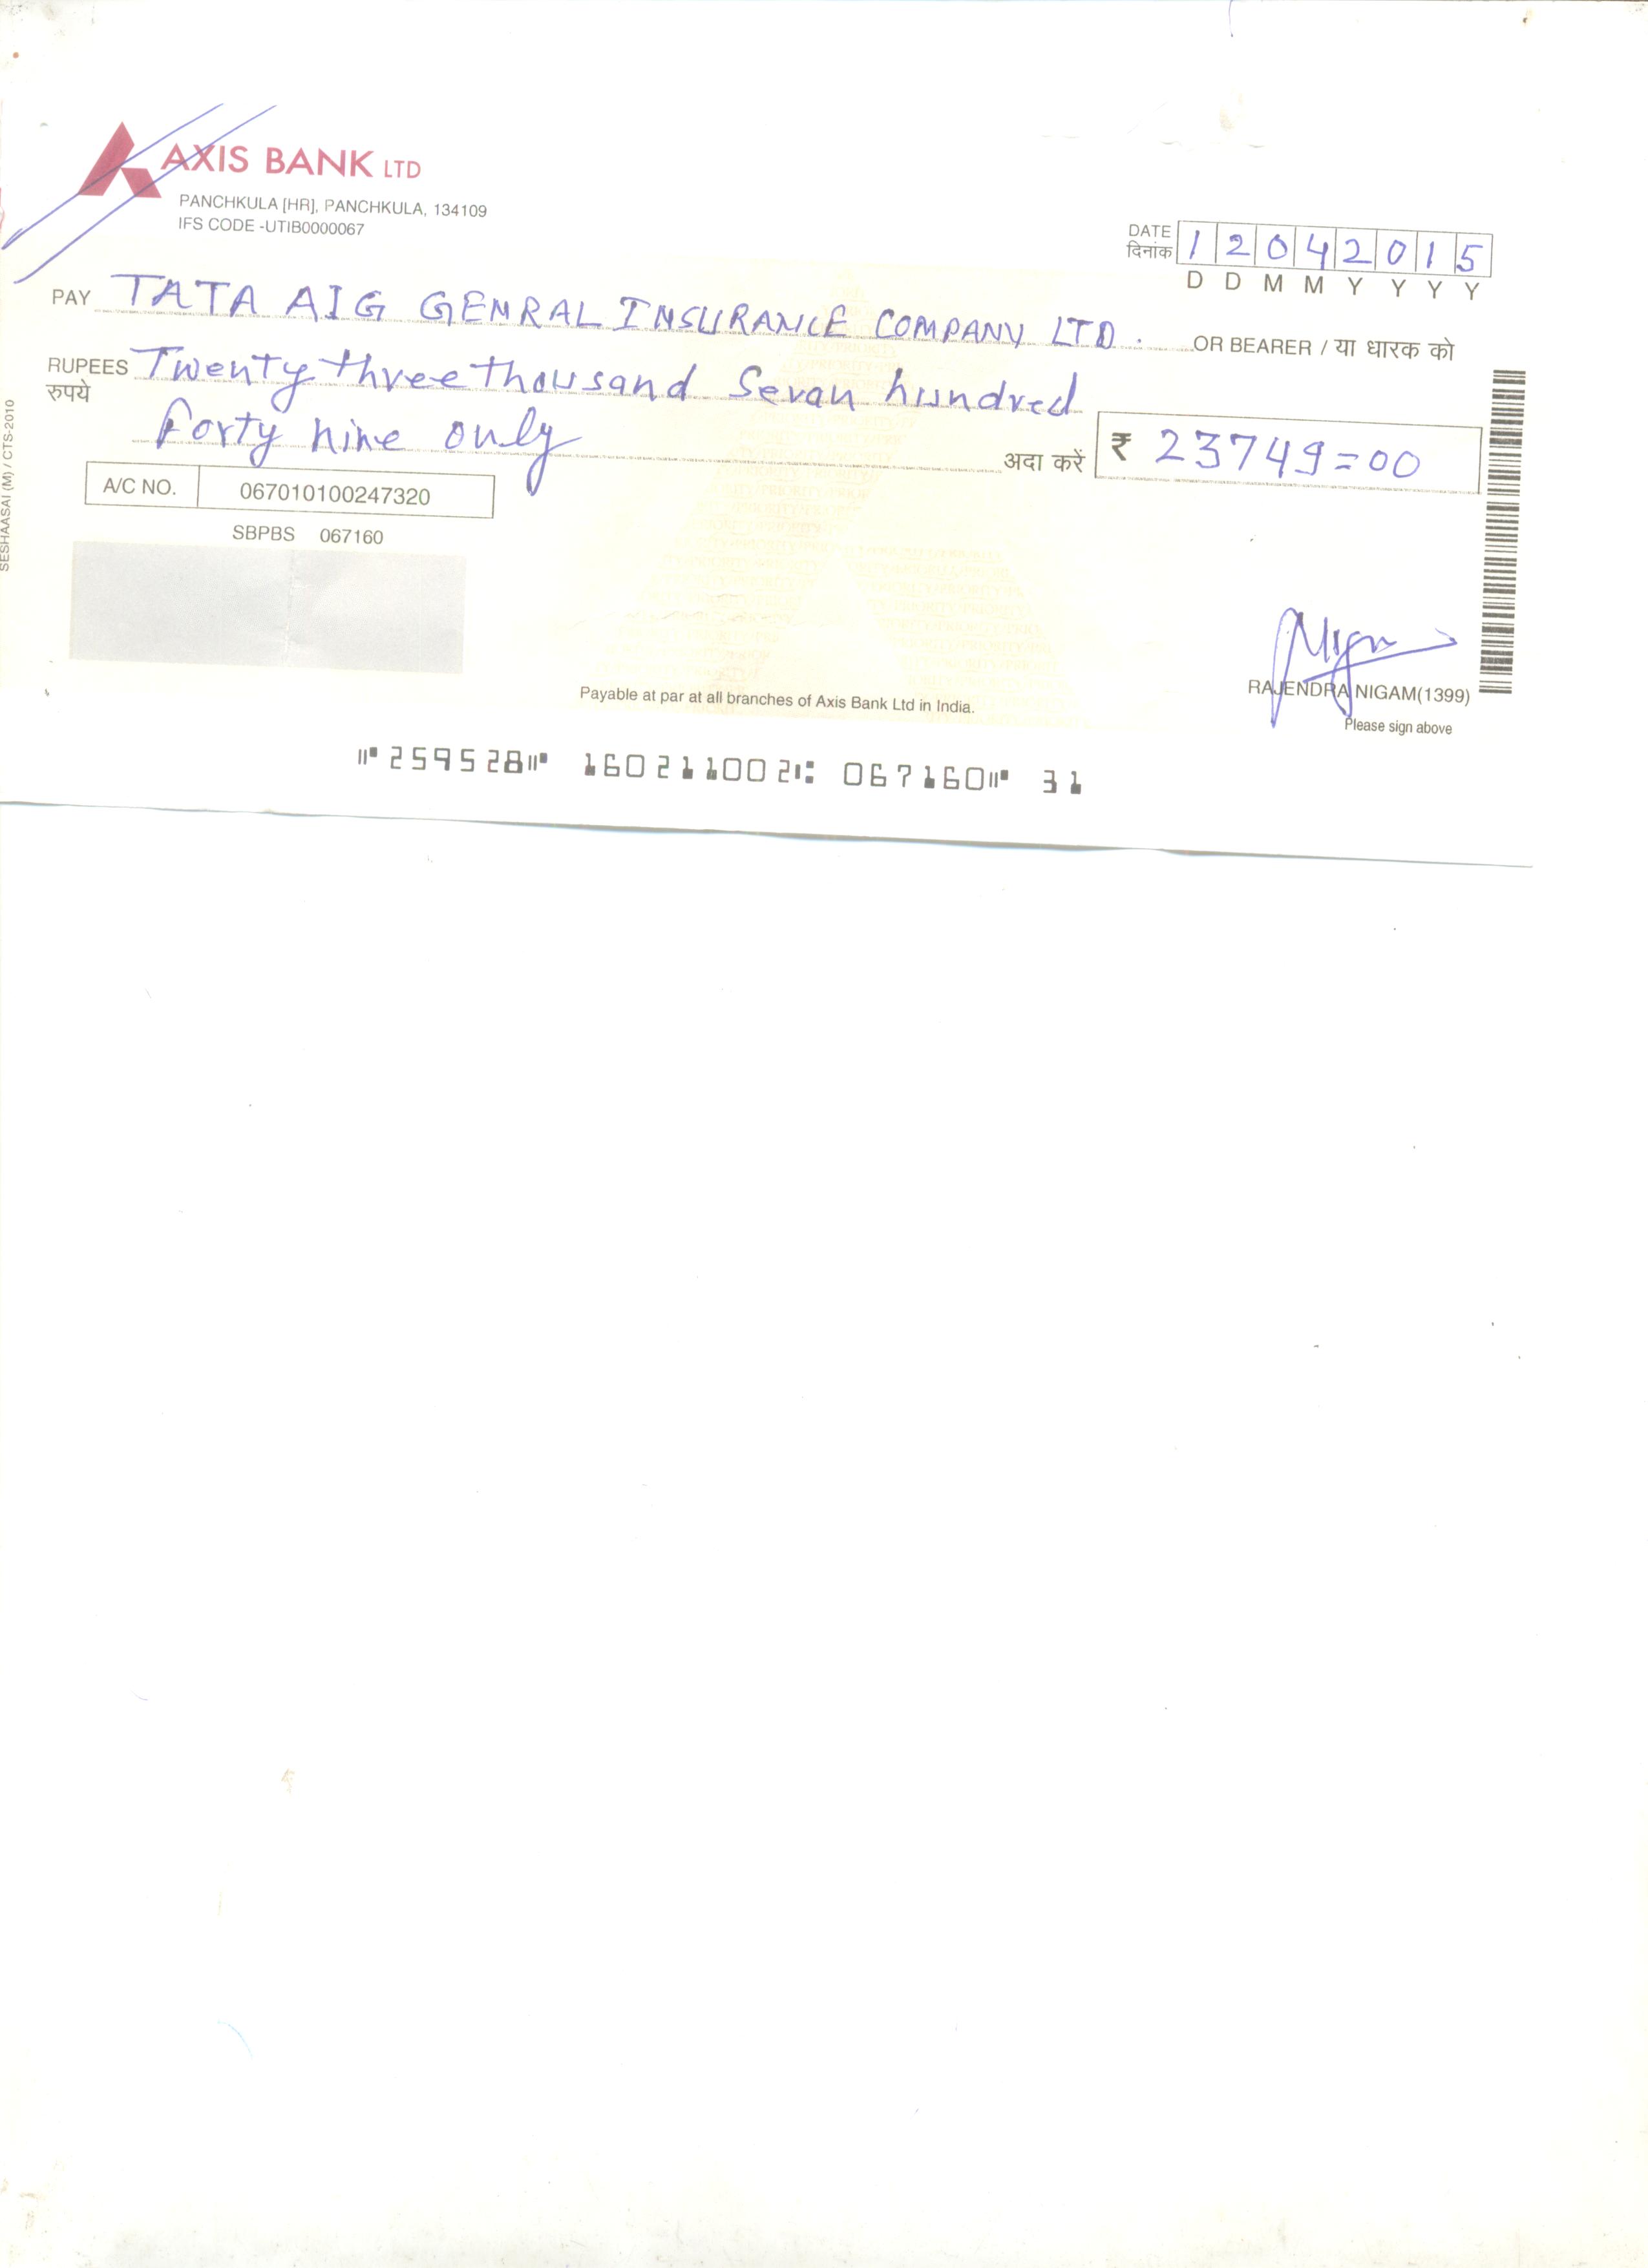 AXIS BANK LTD
PANCHKULA [HR], PANCHKULA, 134109
IFS CODE -UTIB0000067
DATE 12042015
दिनांक
D D M M Y Y Y Y
PAY TATA AIG GENRAL INSURANCE COMPANY LTD. OR BEARER / या धारक को
RUPEES Twenty three thousand Sevan hundred
रुपये
forty nine only अदा करें ₹ 23749=00
A/C NO. 067010100247320
SBPBS 067160
SESHAASAI (M) / CTS-2010
Nigam
RAJENDRA NIGAM(1399)
Payable at par at all branches of Axis Bank Ltd in India.
Please sign above
⑈259528⑈ 160211002⑆ 067160⑈ 31